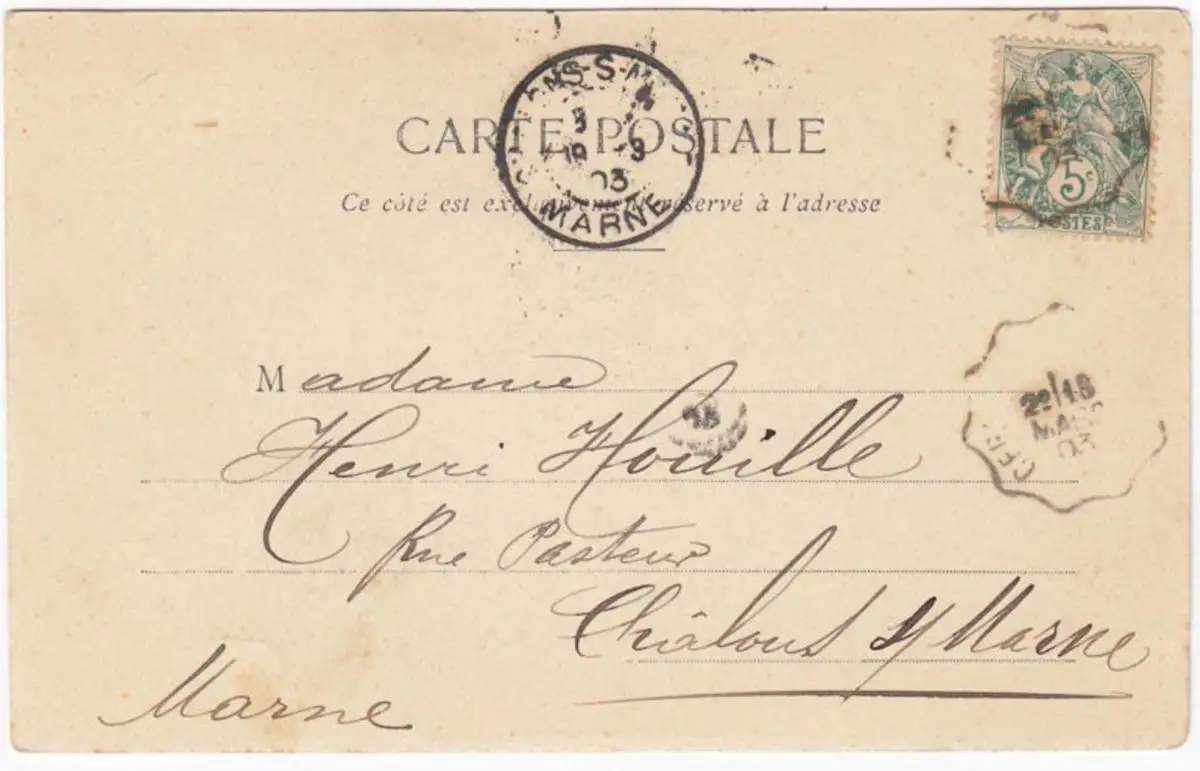 CARTE POSTALE
Ce côté est exclusivement réservé à l'adresse
MARNE
03
5c
POSTES
Madame
Henri Houille
Rue Pasteur
Châlons s/ Marne
Marne
18
MARS
03